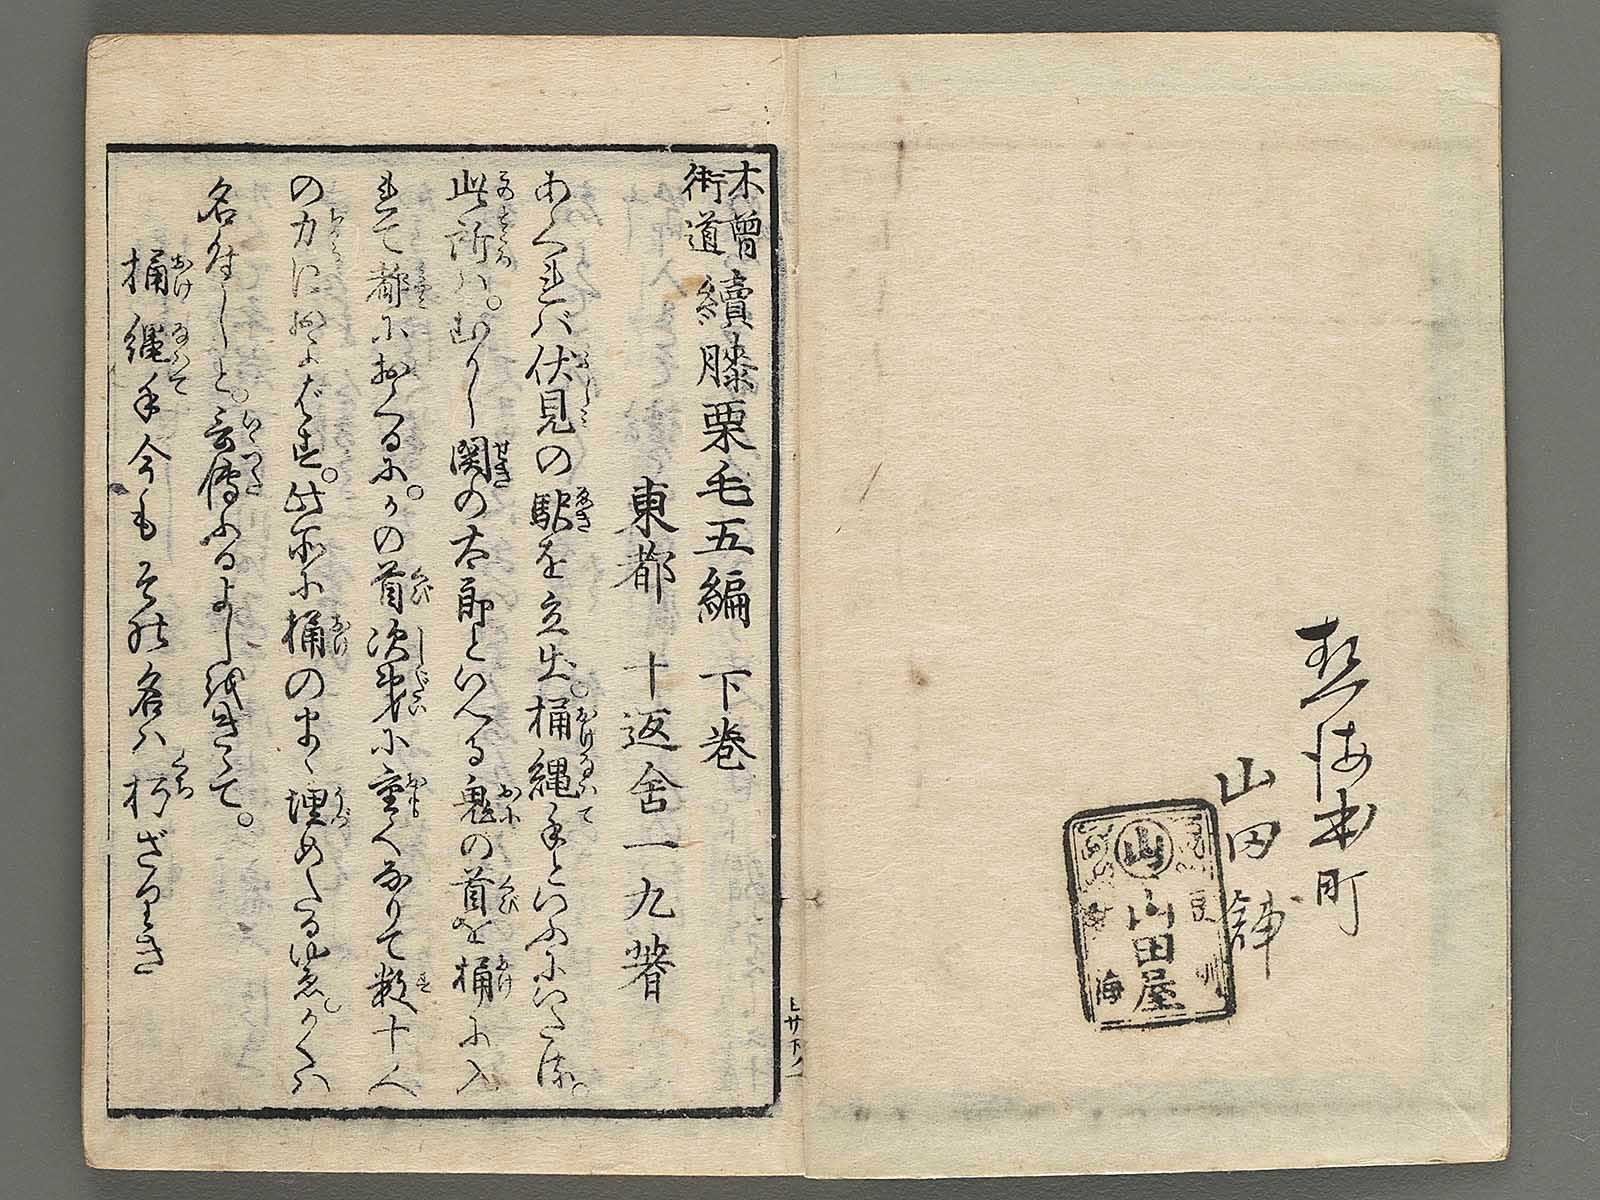 熱海本町
山田
山
山田屋
豆州
熱海
木曽
街道
續膝栗毛五編 下巻
東都 十返舎一九著
あくれバ伏見の駅を立出。桶縄手といふにいたる。
此所ハ。むかし関の太郎といへる鬼の首を桶に入
れて都におくるに。かの首次第に重くなりて数十人
の力におよバず。此所に桶のまゝ埋めたるゆゑ。かくハ
名付しと。言傳ふるよしをきゝて。
桶縄手今もその名ハ朽ざりき